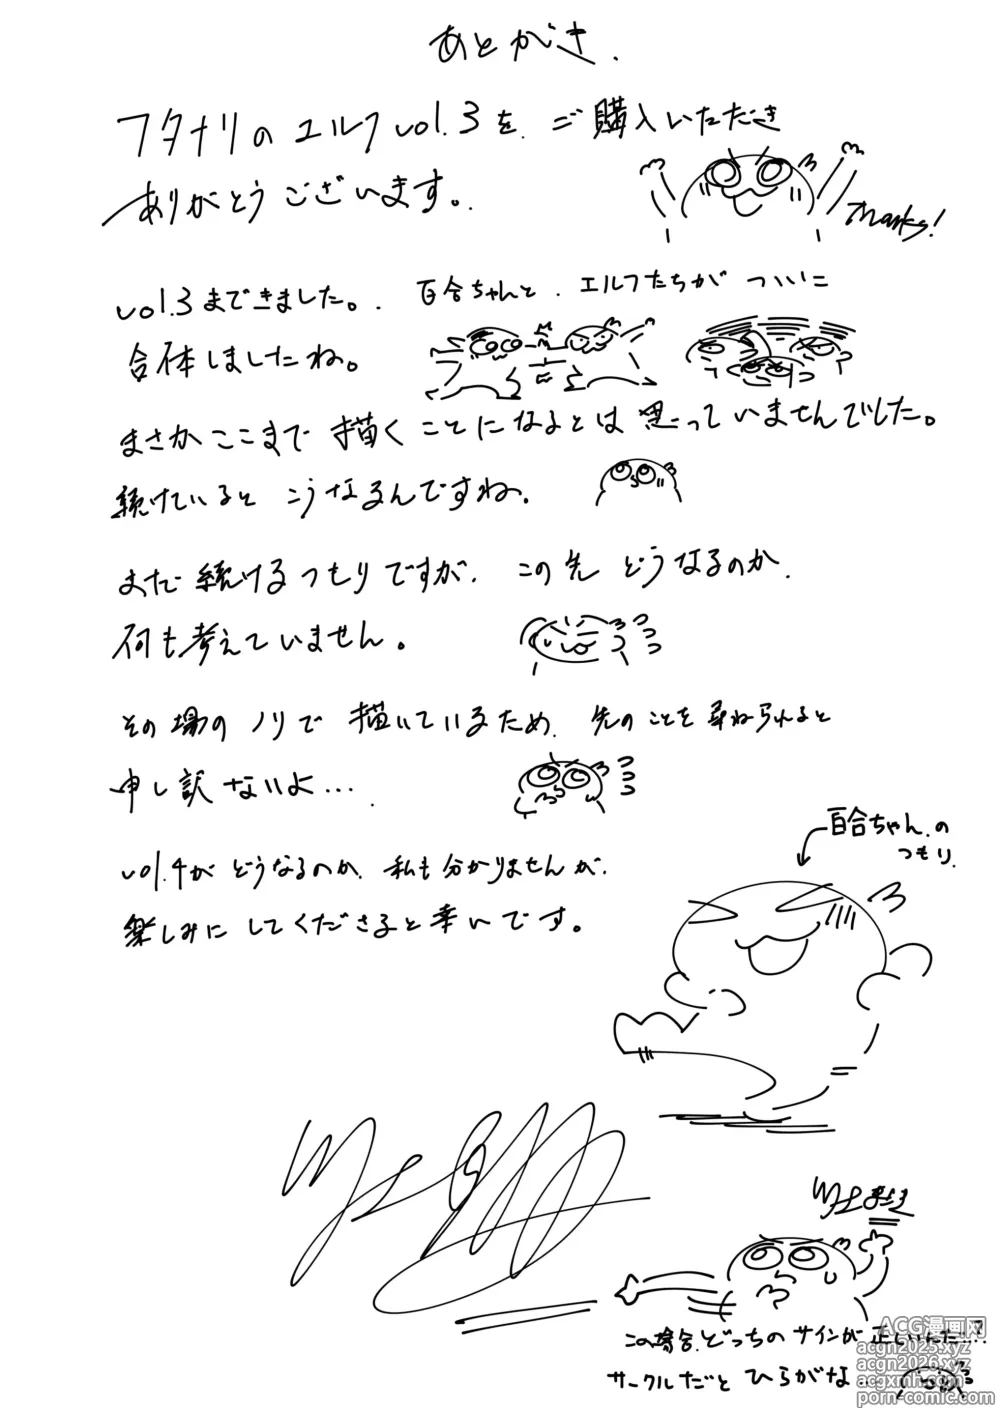 あとがき.
フタナリの エルフvol.3を.ご購入いただき
ありがとうございます。.
thanks!
vol.3まできました。. 百合ちゃんと. エルフたちが ついに
合体しましたね。
まさかここまで 描くことになるとは 思っていませんでした。
続けていると こうなるんですね.
まだ続けるつもりですが. この先 どうなるのか.
何も考えていません。
その場の ノリで 描いているため. 先のことを 尋ねられると
申し訳ないよ....
百合ちゃん.の
つもり.
vol.4が どうなるのか. 私も分かりませんが.
楽しみに してくださると幸いです。
この場合.どっちの サインが 正しいんだ...?
サークルだと ひらがな...
ACG漫画网
acgn2025.xyz
acgn2026.xyz
acgxmh.com
porn-comic.com